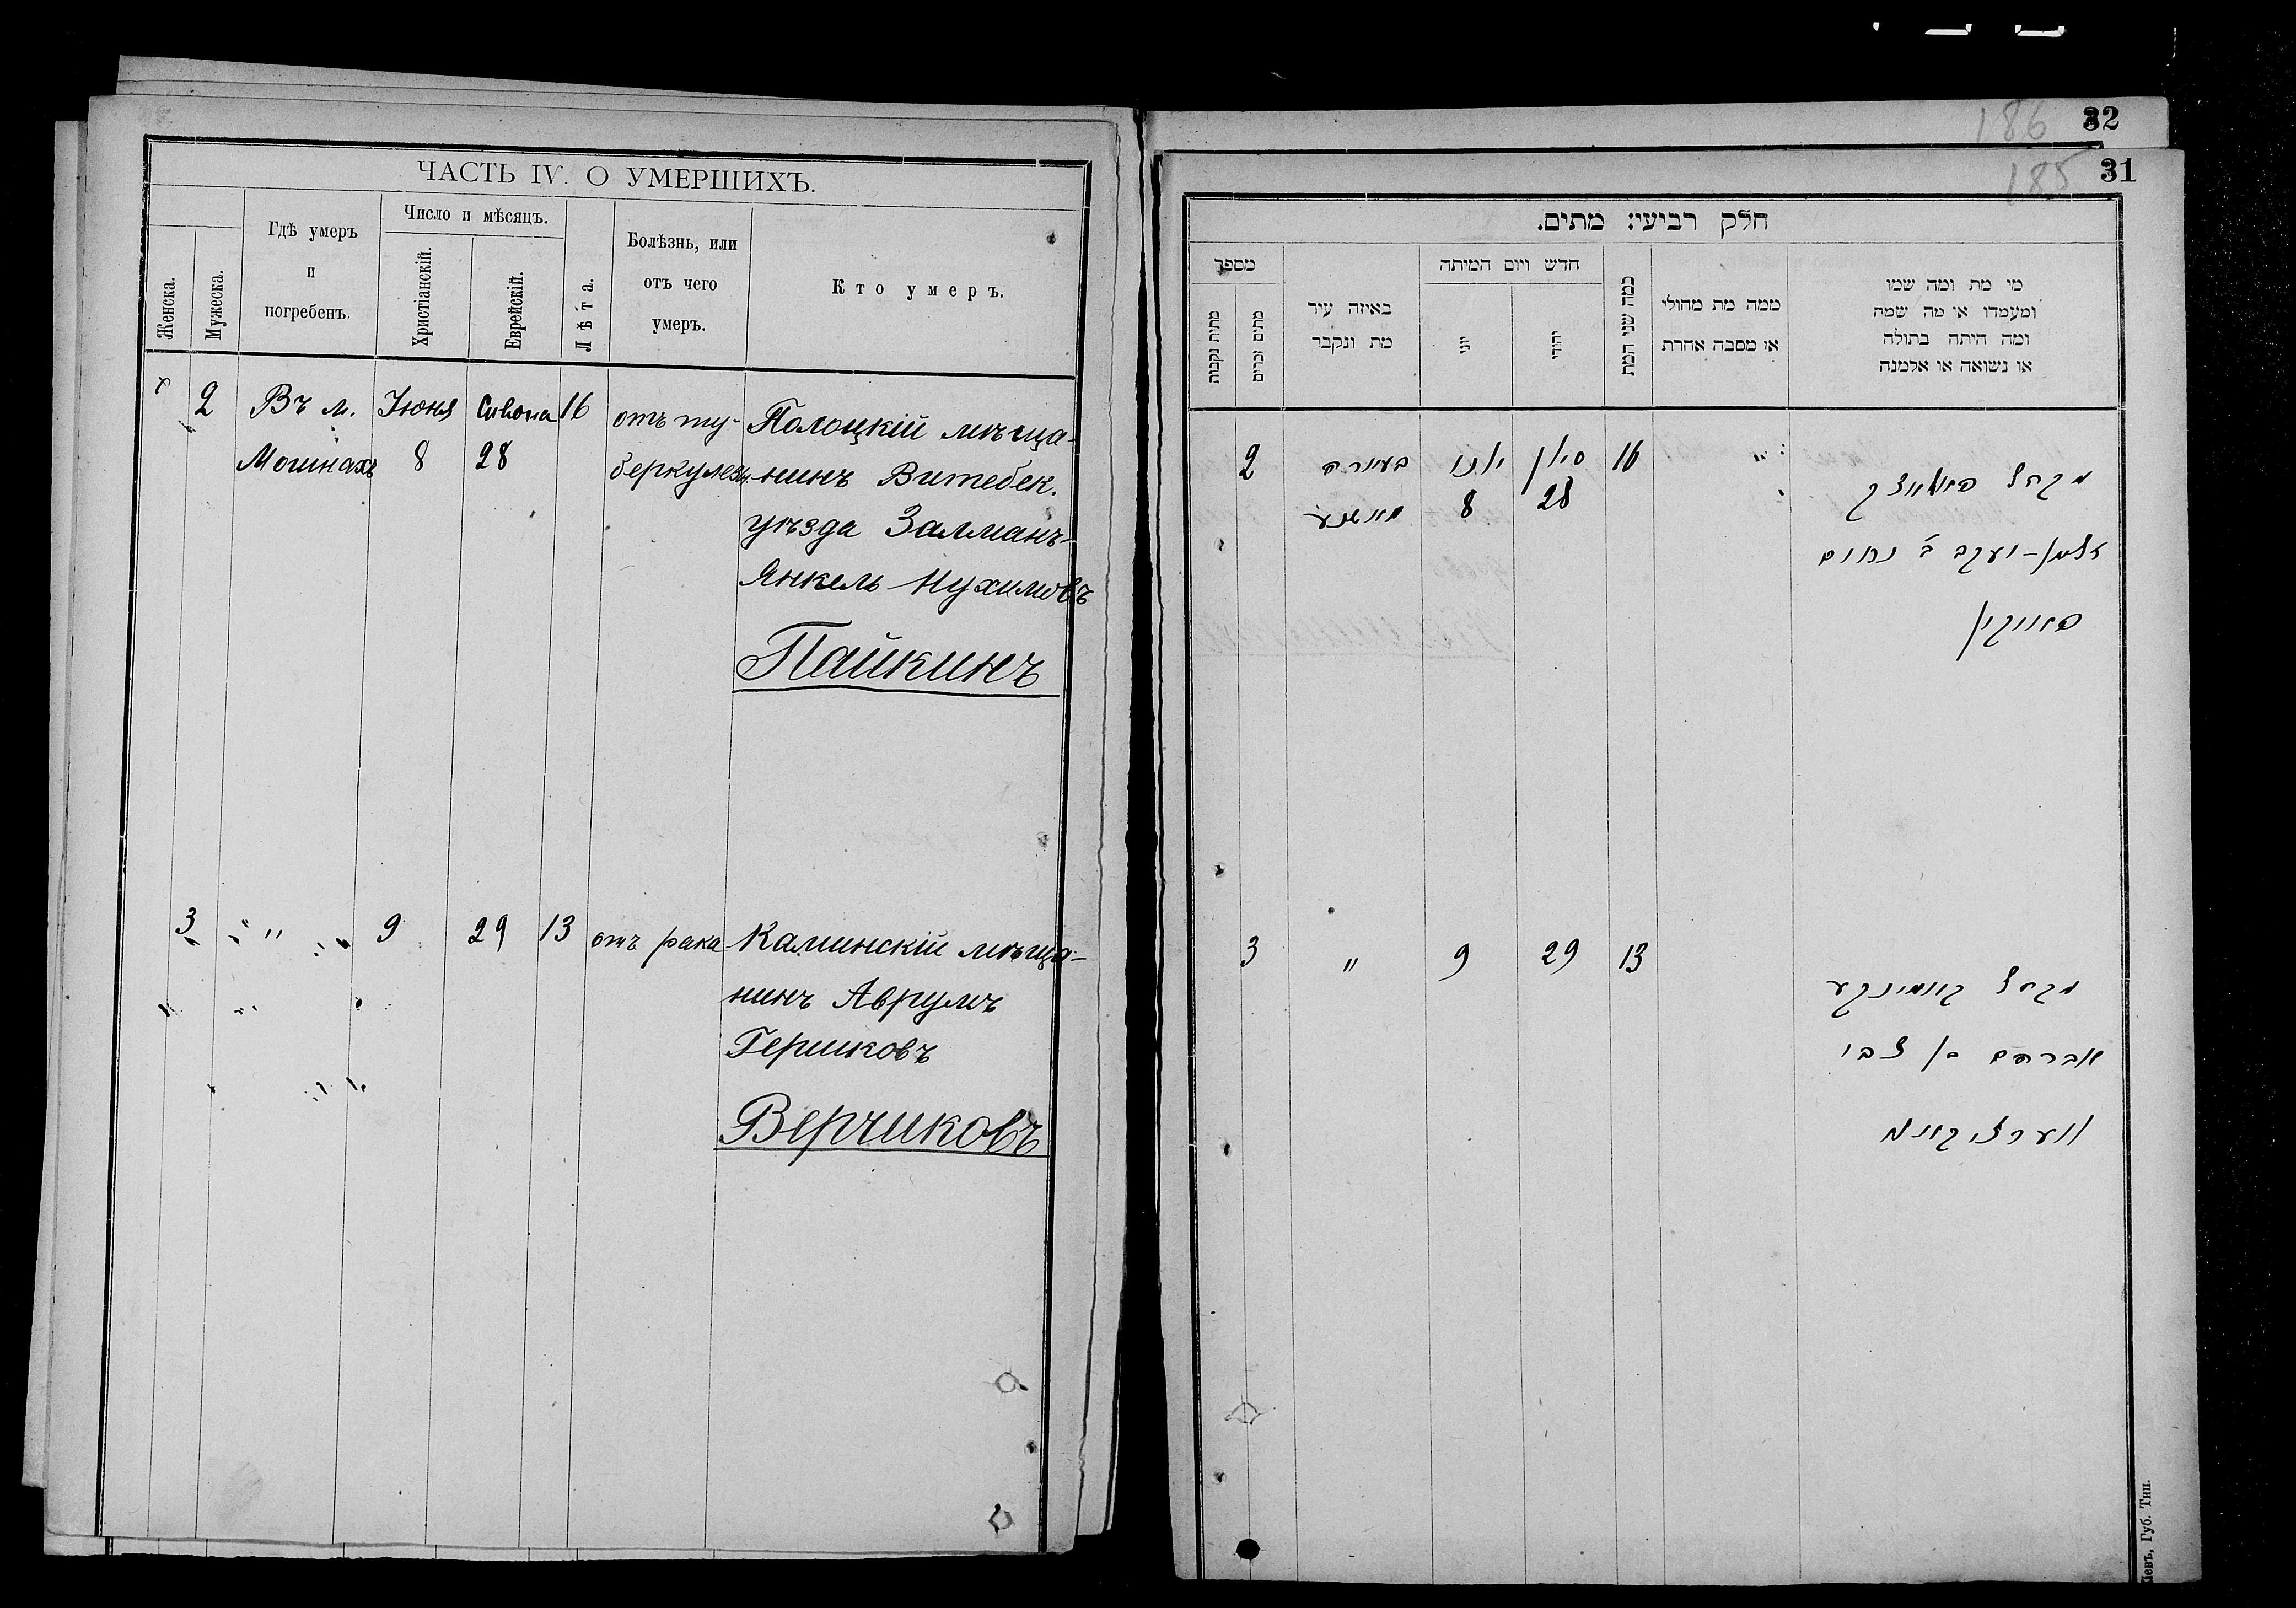 ЧАСТЬ IV. О УМЕРШИХЪ.
Женска.
Мужеска.
Гдѣ умеръ
и
погребенъ.
Число и мѣсяцъ.
Христіанскій.
Еврейскій.
Лѣта.
Болѣзнь, или
отъ чего
умеръ.
Кто умеръ.
2 Въ м. Іюня Сивона 16 отъ ту- Полоцкій мѣща-
8 28 беркулеза нинъ Витебск.
уѣзда Залманъ-
Янкель Нухимовъ
Пайкинъ
3 " 9 29 13 отъ рака Каминскій мѣща-
нинъ Аврумъ
Гершковъ
Верчиковъ
186 32
185 31
חלק רביעי: מתים.
מספר
מתות נקבות
מתים זכרים
באיזה עיר
מת ונקבר
חדש ויום המיתה
יוני
יהודי
כמה שני המת
ממה מת מחולי
או מסבה אחרת
מי מת ומה שמו
ומעמדו או מה שמה
ומה היתה בתולה
או נשואה או אלמנה
2 בעירה יוני סיון 16
8 28
מקהל פאלאצק
זלמן-יעקב ב' נחום
פייקין
3 " 9 29 13
מקהל קאמינקע
אברהם בן צבי
ווערציקאוו
Кіевъ, Губ. Тип.